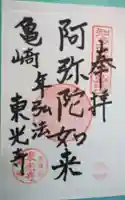 奉拝
阿弥陀如来
亀崎
年弘法
東光寺